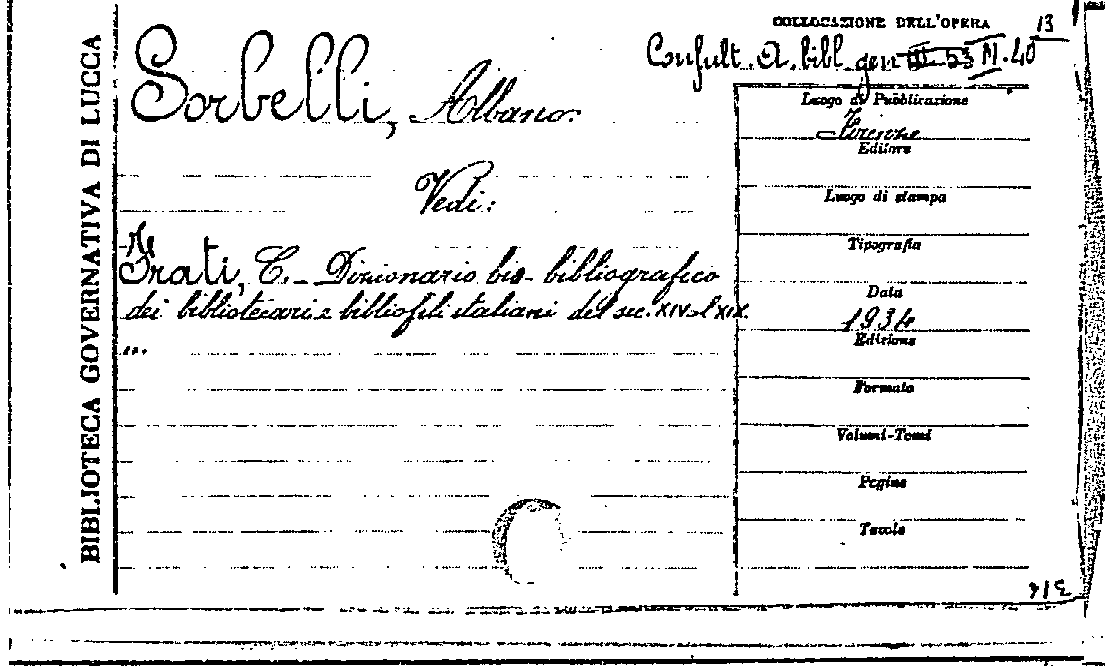 BIBLIOTECA GOVERNATIVA DI LUCCA
COLLOCAZIONE DELL'OPERA
13
Consult. A. bibl. gen. III. 53 M. 40
Sorbelli, Albano.
Vedi:
Frati, C. - Dizionario bio-bibliografico
dei bibliotecari e bibliofili italiani dal sec. XIV al XIX.
...
Luogo di Pubblicazione
Firenze
Editore
Luogo di stampa
Tipografia
Data
1934
Edizione
Formato
Volumi-Tomi
Pagine
Tavole